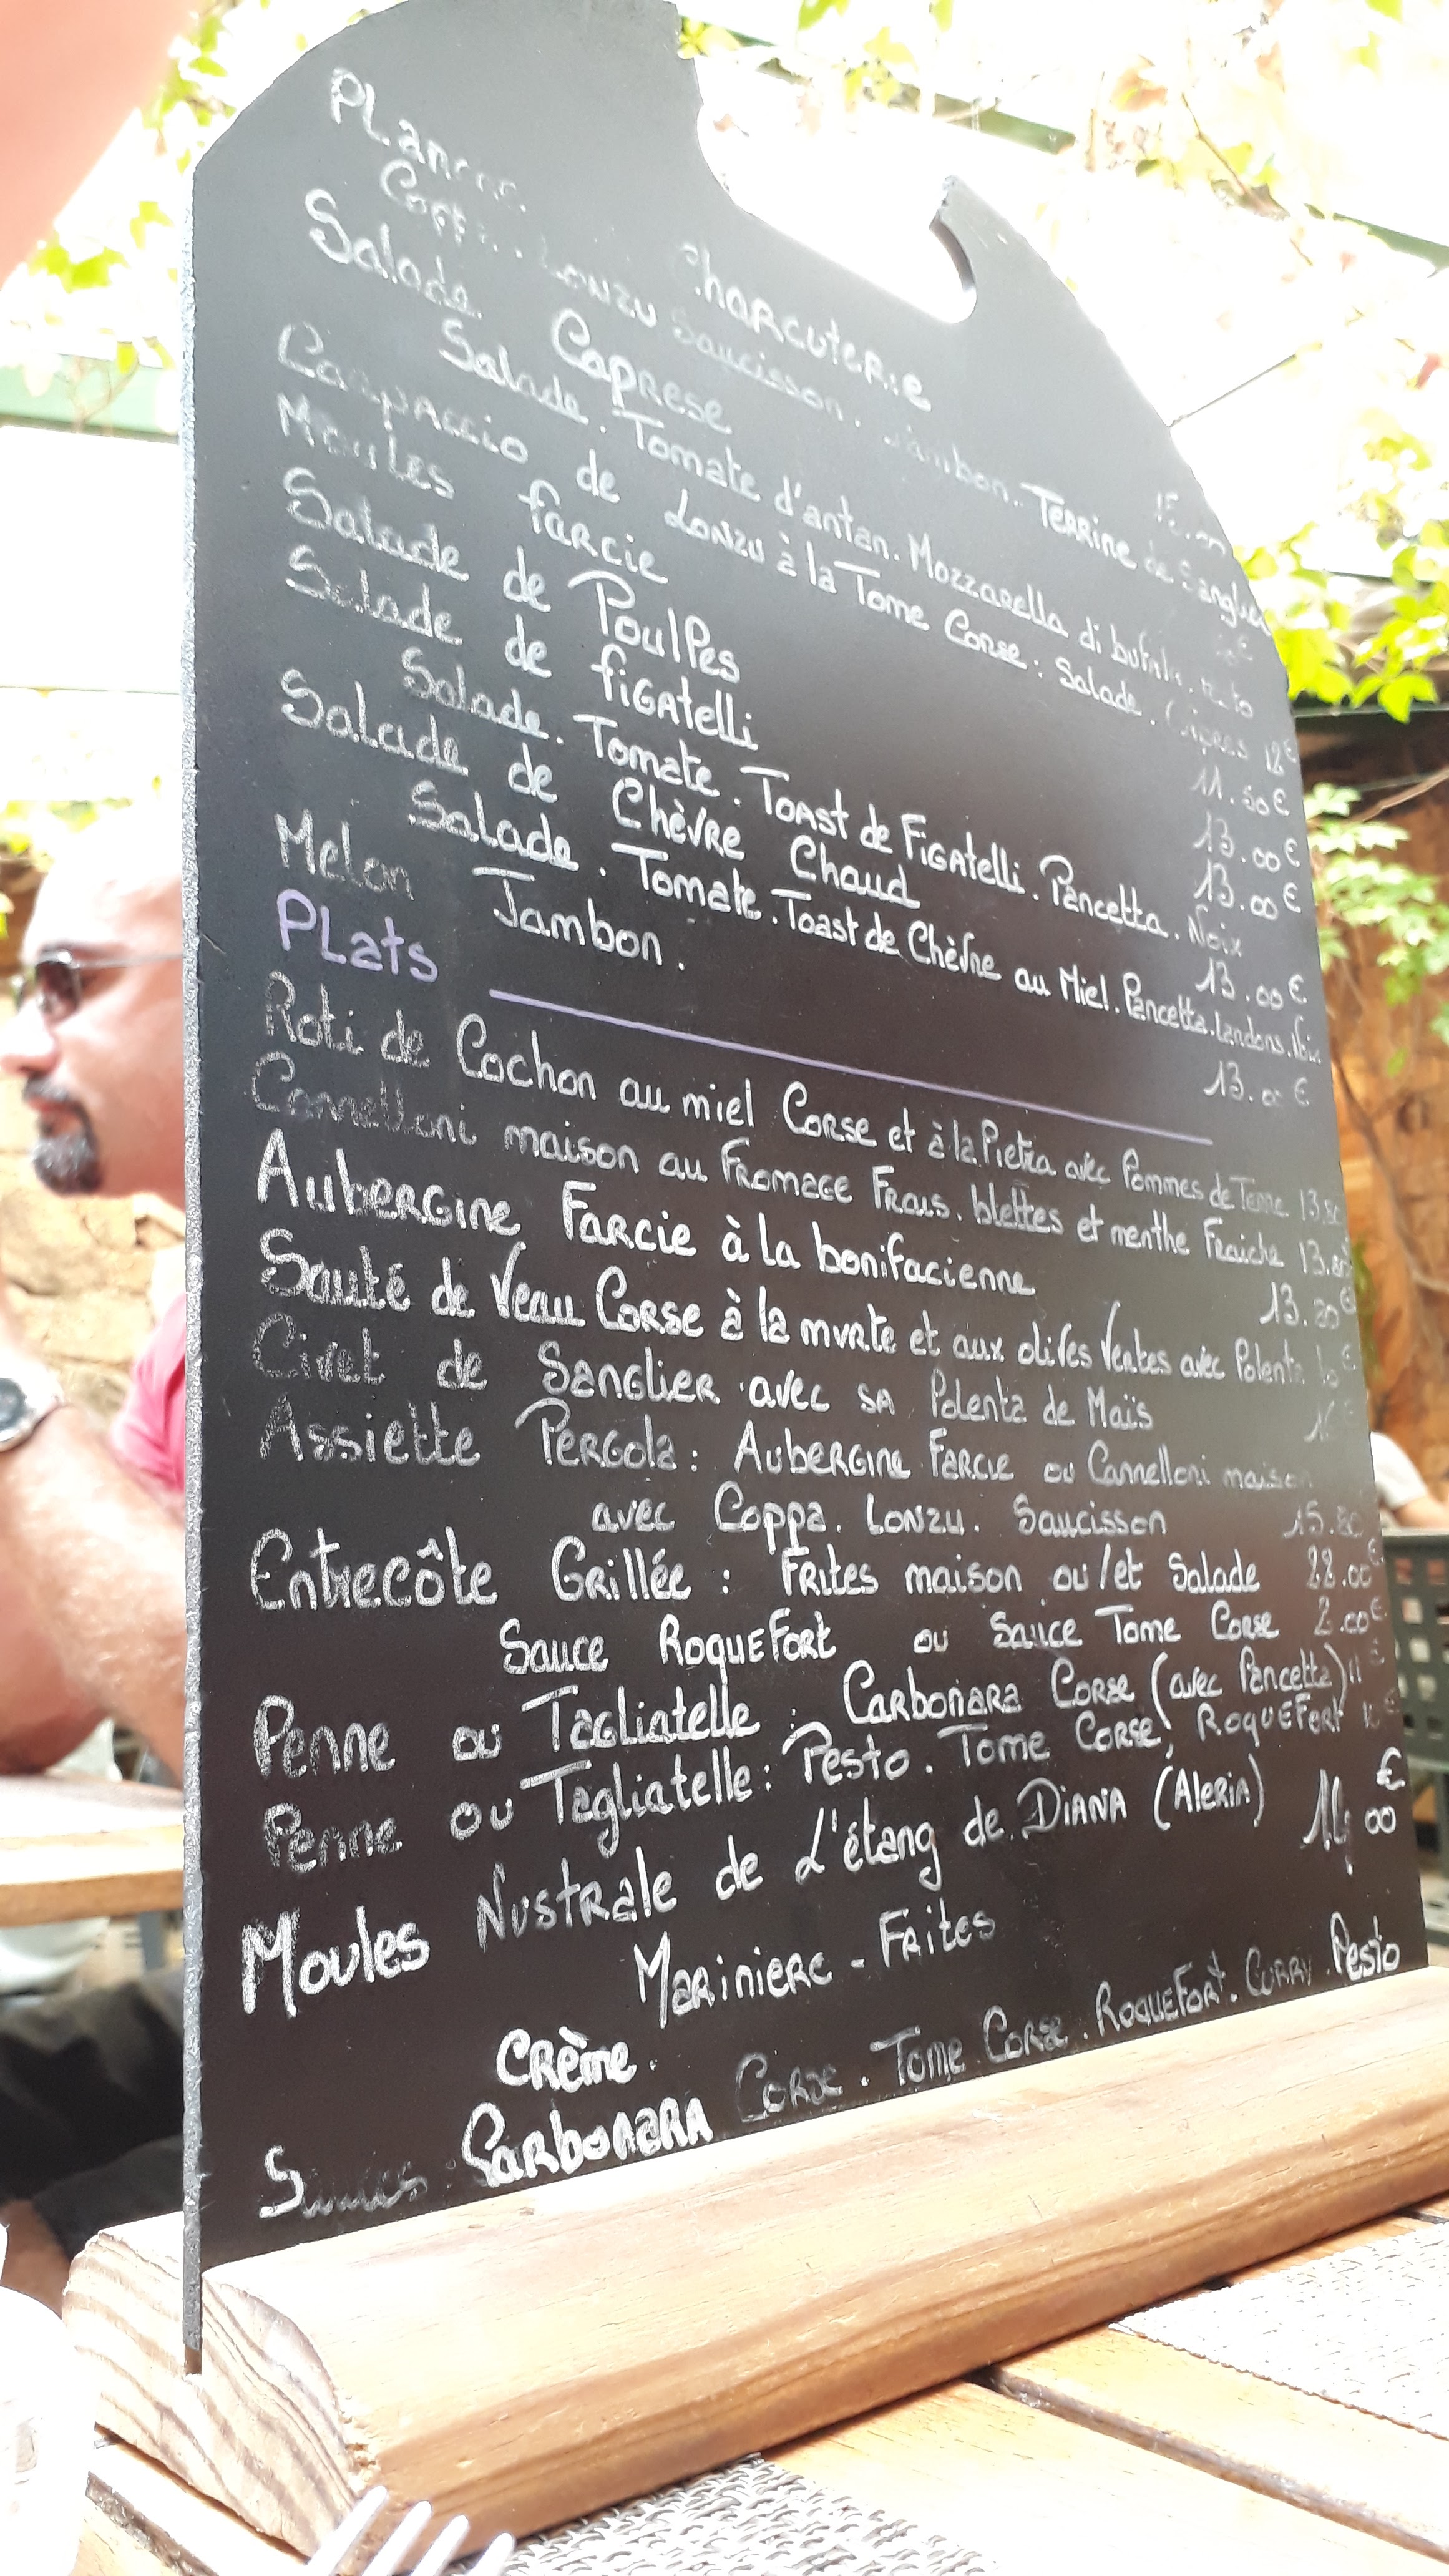 Charcuterie
Lonzu Saucisson. Jambon. Terrine de Sanglier
Salade Caprese
Salade. Tomate d'antan. Mozzarella di bufala.
Carpaccio de Lonzu à la Tome Corse: Salade. Capres 12€
Moules farcie 11.50€
Salade de Poulpes 13.00€
Salade de figatelli 13.00€
Salade. Tomate. Toast de Figatelli. Pancetta. Noix
Salade de Chèvre Chaud 13.00€
Salade. Tomate. Toast de Chèvre au Miel. Pancetta. Lardons. Noix
Melon Jambon. 13.00€
Plats
Roti de Cochon au miel Corse et à la Pietra avec Pommes de Terre 13.80
Cannelloni maison au Fromage Frais. blettes et menthe Fraiche 13.80
Aubergine Farcie à la bonifacienne 13.20€
Sauté de Veau Corse à la myrte et aux olives Vertes avec Polenta
Civet de Sanglier avec sa Polenta de Maïs
Assiette Pergola: Aubergine Farcie ou Cannelloni maison
avec Coppa. Lonzu. Saucisson 15.80
Entrecôte Grillée: Frites maison ou/et Salade 22.00€
Sauce Roquefort ou Sauce Tome Corse 2.00€
Penne ou Tagliatelle: Carbonara Corse (avec Pancetta) 11€
Penne ou Tagliatelle: Pesto. Tome Corse, Roquefort
Moules Nustrale de L'étang de Diana (Aleria) 14.00€
Mariniere - Frites
Crème.
Sauces: Carbonara Corse. Tome Corse. Roquefort. Curry. Pesto